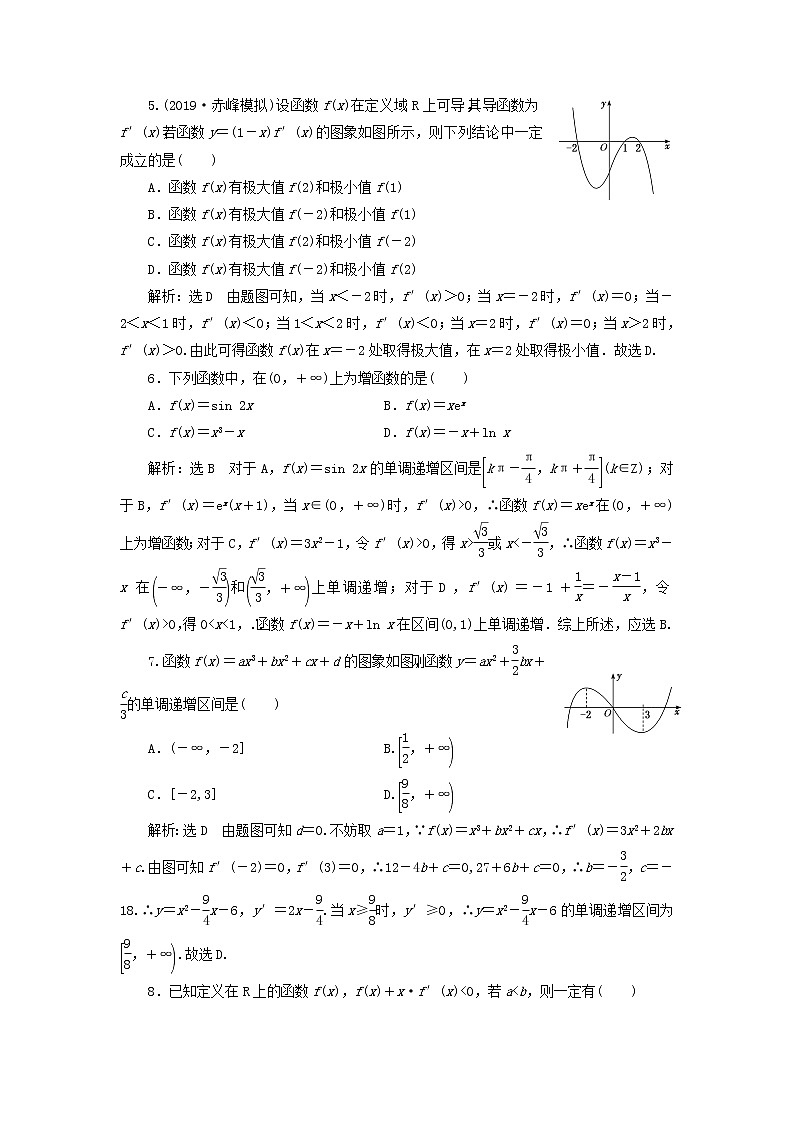 5.(2019·赤峰模拟)设函数 f(x)在定义域 R 上可导,其导函数为
f′(x)若函数 y=(1-x)f′(x)的图象如图所示，则下列结论中一定
成立的是(　　)
y
-2 O 1 2 x
A．函数 f(x)有极大值 f(2)和极小值 f(1)
B．函数 f(x)有极大值 f(-2)和极小值 f(1)
C．函数 f(x)有极大值 f(2)和极小值 f(-2)
D．函数 f(x)有极大值 f(-2)和极小值 f(2)
解析：选 D　由题图可知，当 x＜-2 时，f′(x)＞0；当 x=-2 时，f′(x)=0；当-
2＜x＜1 时，f′(x)＜0；当 1＜x＜2 时，f′(x)＜0；当 x=2 时，f′(x)=0；当 x＞2 时，
f′(x)＞0.由此可得函数 f(x)在 x=-2 处取得极大值，在 x=2 处取得极小值．故选 D.
6．下列函数中，在(0，+∞)上为增函数的是(　　)
A．f(x)=sin 2x　　B．f(x)=xeˣ
C．f(x)=x³-x　　D．f(x)=-x+ln x
解析：选 B　对于 A，f(x)=sin 2x 的单调递增区间是[kπ-π/4，kπ+π/4](k∈Z)；对
于 B，f′(x)=eˣ(x+1)，当 x∈(0，+∞)时，f′(x)>0，∴函数 f(x)=xeˣ在(0，+∞)
上为增函数；对于 C，f′(x)=3x²-1，令 f′(x)>0，得 x>√3/3或 x<-√3/3，∴函数 f(x)=x³-
x 在(-∞，-√3/3)和(√3/3，+∞)上单调递增；对于 D，f′(x)=-1+1/x=-(x-1)/x，令
f′(x)>0,得 0<x<1，∴函数 f(x)=-x+ln x 在区间(0,1)上单调递增．综上所述，应选 B.
7.函数 f(x)=ax³+bx²+cx+d 的图象如图,则函数 y=ax²+3/2bx+
c/3的单调递增区间是(　　)
y
-2 O 3 x
A．(-∞，-2]　　B.[1/2，+∞)
C．[-2,3]　　D.[9/8，+∞)
解析：选 D　由题图可知 d=0.不妨取 a=1,∵f(x)=x³+bx²+cx,∴f′(x)=3x²+2bx
+c.由图可知 f′(-2)=0,f′(3)=0,∴12-4b+c=0,27+6b+c=0,∴b=-3/2,c=-
18.∴y=x²-9/4x-6，y′=2x-9/4.当 x≥9/8时，y′≥0，∴y=x²-9/4x-6 的单调递增区间为
[9/8，+∞).故选 D.
8．已知定义在 R 上的函数 f(x)，f(x)+x·f′(x)<0，若 a<b，则一定有(　　)